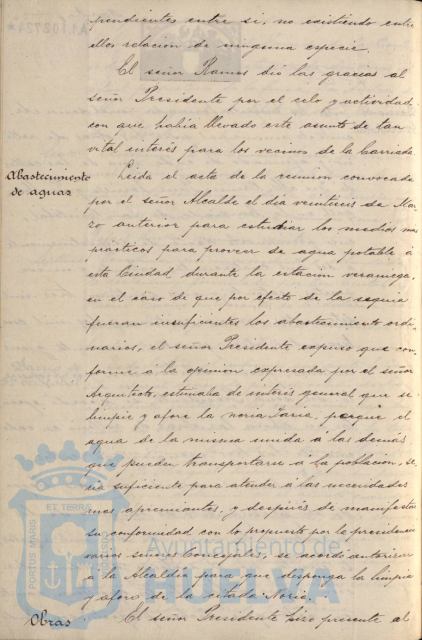 pendientes entre si, no existiendo entre
ellos relación de ninguna especie.
El señor Ramos dió las gracias al
señor Presidente por el celo y actividad
con que había llevado este asunto de tan
vital interés para los vecinos de la Barriada.
Abastecimiento
de aguas
Leida el acta de la reunion convocada
por el señor Alcalde el dia veintiseis de Mar-
zo anterior para estudiar los medios mas
prácticos para proveer de agua potable á
esta Ciudad durante la estación veraniega,
en el caso de que por efecto de la sequia
fueran insuficientes los abastecimiento ordi-
narios, el señor Presidente expuso que con-
forme á la opinion expresada por el señor
Arquitecto, estimaba de interés general que se
limpie y afore la noria Paria, porque el
agua de la misma unida á las demás
que pueden transportarse á la población, se-
ria suficiente para atender á las necesidades
mas apremiantes, y después de manifestar
su conformidad con lo propuesto por la presidencia
varios señores Concejales, se acordó autorizar
á la Alcaldia para que disponga la limpia
y aforo de la citada Noria.
Obras
El señor Presidente hizo presente al
PORTUS MARIS
ET TERRAE
CUSTODIO
Ayuntamiento de
HUELVA